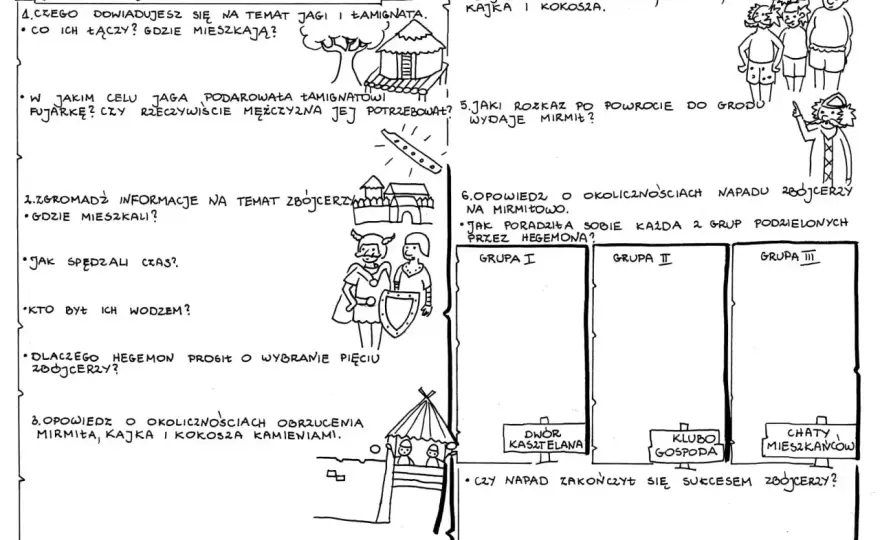 1. CZEGO DOWIADUJESZ SIĘ NA TEMAT JAGI I ŁAMIGNATA.
• CO ICH ŁĄCZY? GDZIE MIESZKAJĄ?
• W JAKIM CELU JAGA PODAROWAŁA ŁAMIGNATOWI
FUJARKĘ? CZY RZECZYWIŚCIE MĘŻCZYZNA JEJ POTRZEBOWAŁ?
2. ZGROMADŹ INFORMACJE NA TEMAT ZBÓJCERZY
• GDZIE MIESZKALI?
• JAK SPĘDZALI CZAS?
• KTO BYŁ ICH WODZEM?
• DLACZEGO HEGEMON PROSIŁ O WYBRANIE PIĘCIU
ZBÓJCERZY?
3. OPOWIEDZ O OKOLICZNOŚCIACH OBRZUCENIA
MIRMIŁA, KAJKA I KOKOSZA KAMIENIAMI.
KAJKA I KOKOSZA.
5. JAKI ROZKAZ PO POWROCIE DO GRODU
WYDAJE MIRMIŁ?
6. OPOWIEDZ O OKOLICZNOŚCIACH NAPADU ZBÓJCERZY
NA MIRMIŁOWO.
• JAK PORADZIŁA SOBIE KAŻDA Z GRUP PODZIELONYCH
PRZEZ HEGEMONA?
GRUPA I
GRUPA II
GRUPA III
DWÓR
KASZTELANA
KLUBO
GOSPODA
CHATY
MIESZKAŃCÓW
• CZY NAPAD ZAKOŃCZYŁ SIĘ SUKCESEM ZBÓJCERZY?